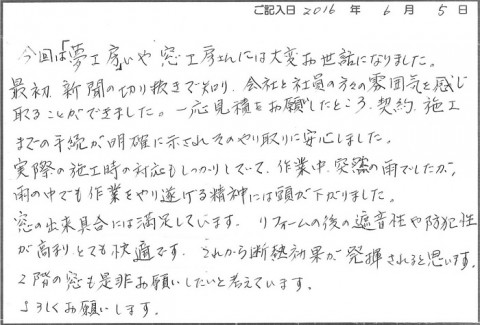 ご記入日 2016 年 6 月 5 日
今回は「夢工房」いや窓工房さんには大変お世話になりました。
最初、新聞の切り抜きで知り、会社と社員の方々の雰囲気を感じ
取ることができました。一応見積をお願いしたところ、契約、施工
までの手続が明確に示されそのやり取りに安心しました。
実際の施工時の対応もしっかりしていて、作業中、突然の雨でしたが、
雨の中でも作業をやり遂げる精神には頭が下がりました。
窓の出来具合には満足しています。リフォームの後の遮音性や防犯性
が高まりとても快適です。これから断熱効果が発揮されると思います。
2階の窓も是非お願いしたいと考えています。
よろしくお願いします。